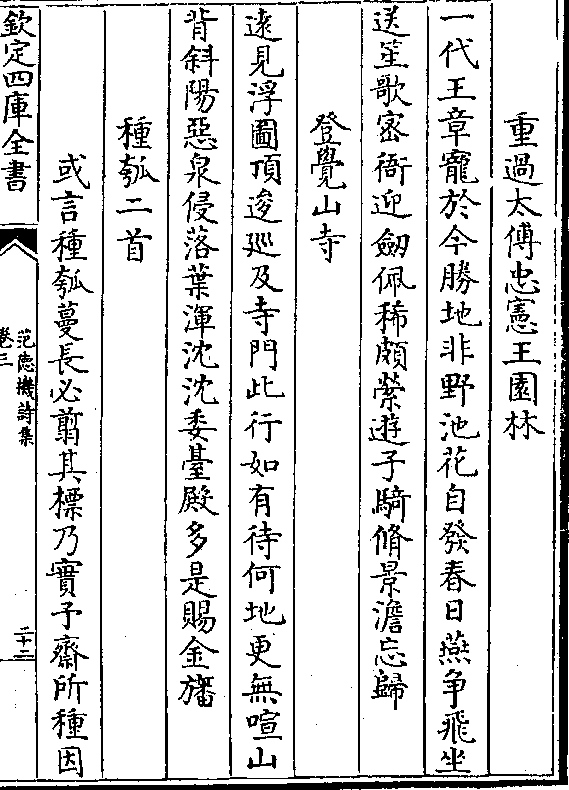 重過太傅忠憲王園林
一代王章寵於今勝地非野池花自發春日燕争飛坐
送笙歌密衙迎劔佩稀頗縈遊子騎脩景澹忘歸
登覺山寺
逺見浮圗頂逡廵及寺門此行如有待何地更無喧山
背斜陽惡泉侵落葉渾沈沈委臺殿多是賜金旛
種瓠二首
或言種瓠蔓長必翦其標乃實予齋所種因
欽定四庫全書
范徳機詩集
卷三
二十二